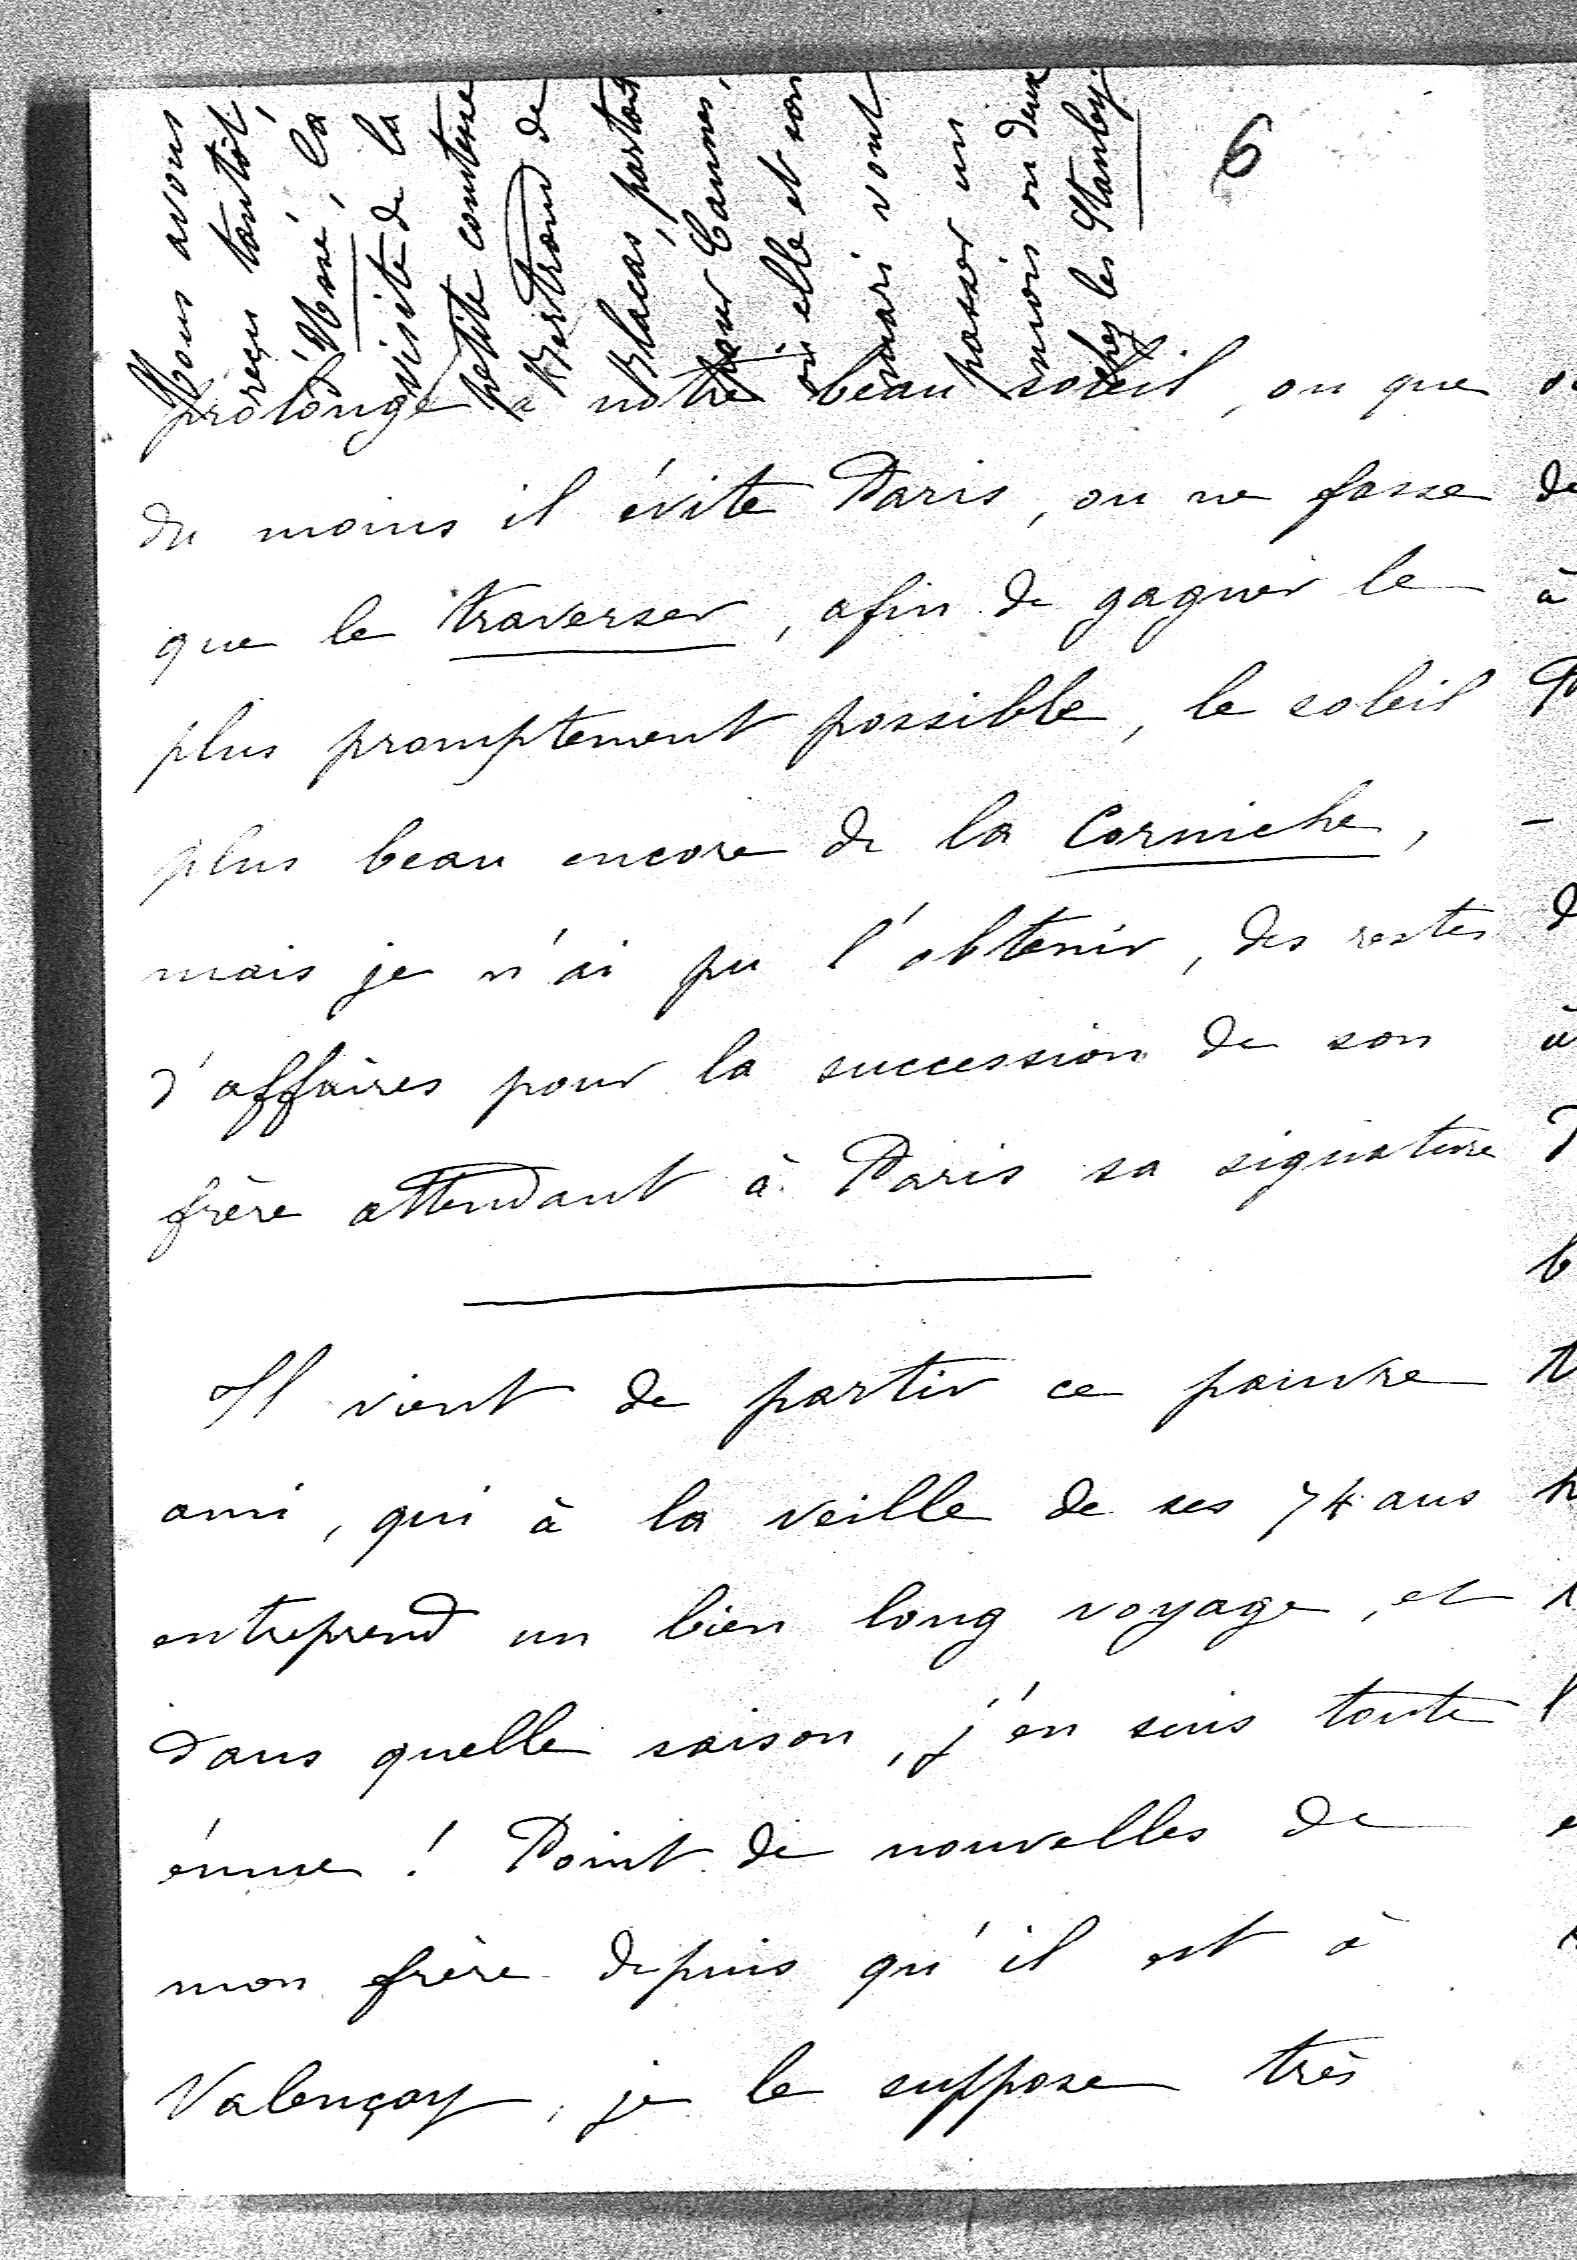 6
Nous avons
reçu tantôt,
d'Ussé, la
visite de la
petite comtesse
Bertrand de
Blacas, partant
pour Cannes,
où elle et son
mari vont
passer un
mois ou deux
chez les Stanley.
prolongé à notre beau soleil, ou que
du moins il évite Paris, ou ne fasse
que le traverser, afin de gagner le
plus promptement possible, le soleil
plus beau encore de la Corniche,
mais je n'ai pu l'obtenir, des restes
d'affaires pour la succession de son
frère attendant à Paris sa signature
Il vient de partir ce pauvre
ami, qui à la veille de ses 74 ans
entreprend un bien long voyage, et
dans quelle saison, j'en suis toute
émue ! Point de nouvelles de
mon frère depuis qu'il est à
Valençay, je le suppose très